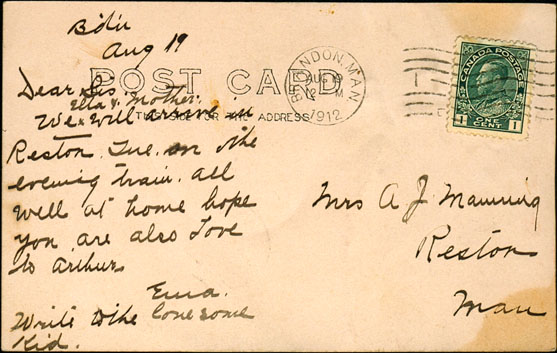 B'd'n
Aug 19
POST CARD
BRANDON, MAN
AUG 19
M
1912
CANADA POSTAGE
1 ONE CENT 1
Dear Sis
Ella & Mother
We will arrive in
THIS FOR THE ADDRESS
Reston Tue. on the
evening train. All
well at home hope
you are also Love
to Arthur
Ema.
Write to the lonesome
Kid.
Mrs A J Manning
Reston
Man